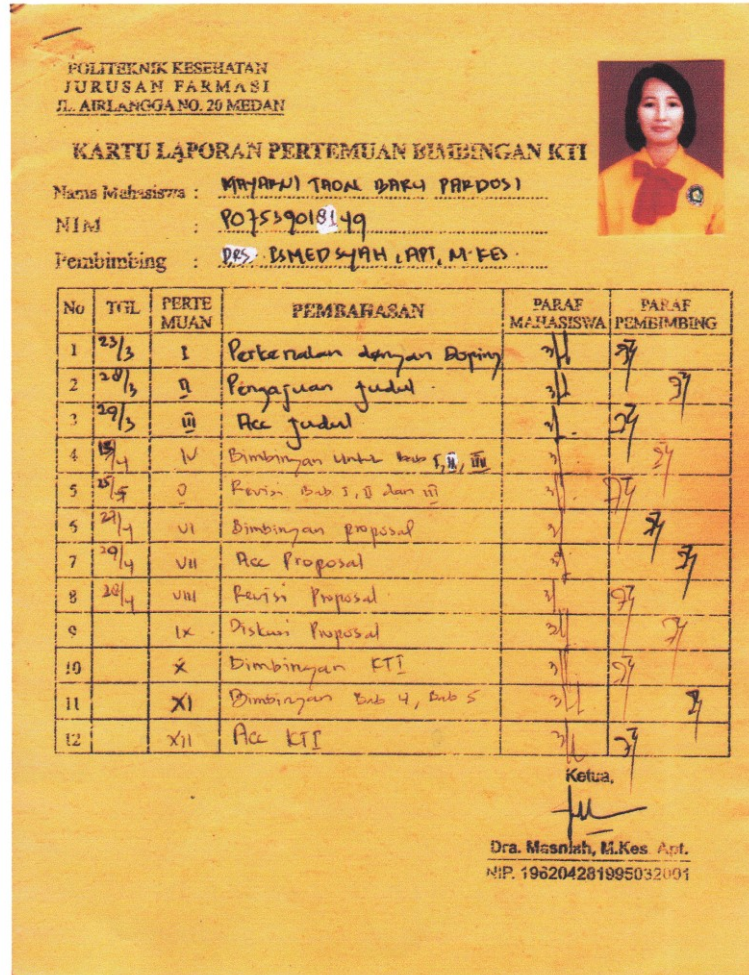 POLITEKNIK KESEHATAN
JURUSAN FARMASI
JL. AIRLANGGA NO. 20 MEDAN
KARTU LAPORAN PERTEMUAN BIMBINGAN KTI
Nama Mahasiswa : MAYARNI TAON BARU PARDOSI
NIM : P07539018149
Pembimbing : DRS. ISMEDSYAH, APT, M.KES.
No TGL PERTEMUAN PEMBAHASAN PARAF MAHASISWA PARAF PEMBIMBING
1 23/3 I Perkenalan dengan Doping
2 28/3 II Pengajuan judul.
3 29/3 III Acc judul
4 /4 IV Bimbingan untuk Bab I, II, III
5 V Revisi Bab I, II dan III
6 27/4 VI Bimbingan proposal
7 29/4 VII Acc Proposal
8 /4 VIII Revisi Proposal
9 IX Diskusi Proposal
10 X Bimbingan KTI
11 XI Bimbingan Bab 4, Bab 5
12 XII Acc KTI
Ketua,
Dra. Masniah, M.Kes. Apt.
NIP. 196204281995032001